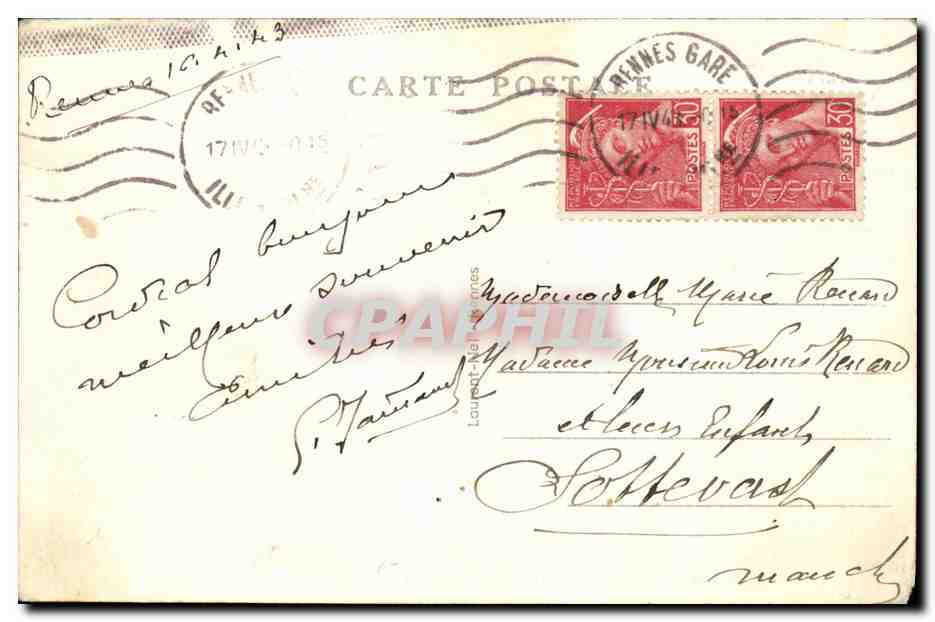 Rennes 16.4.43
CARTE POSTALE
RENNES GARE
17 IV 0 15
ILLE
17 IV 4 0 15
POSTES 30
POSTES 30
Cordial bonjour
meilleurs souvenir
Amitiés
Laurent-Nel Rennes
CPAPHIL
Mademoiselle Marie Renard
Madame Monsieur Louis Renard
et leurs Enfants
Sottevast
Manche